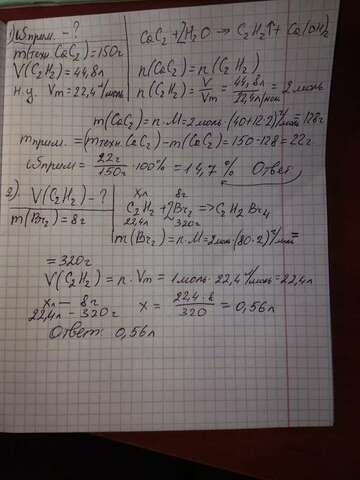 1) ω прим. - ?
m(техн. CaC₂) = 150г
V(C₂H₂) = 44,8л
н.у. Vm = 22,4 л/моль
CaC₂ + 2H₂O → C₂H₂↑ + Ca(OH)₂
n(CaC₂) = n(C₂H₂)
n(C₂H₂) = V/Vm = 44,8л/22,4л/моль = 2 моль
m(CaC₂) = n·M = 2моль·(40+12·2) г/моль = 128г
m прим. = m(техн. CaC₂) - m(CaC₂) = 150-128 = 22г
ω прим = 22г/150г · 100% = 14,7% Ответ
2) V(C₂H₂) - ?
m(Br₂) = 8г
xл 8г
C₂H₂ + 2Br₂ => C₂H₂Br₄
22,4л 320г
m(Br₂) = n·M = 2моль·(80·2) г/моль =
= 320г
V(C₂H₂) = n·Vm = 1моль·22,4 л/моль = 22,4л
xл — 8г
22,4л - 320г
x = 22,4·8/320 = 0,56л
Ответ: 0,56л